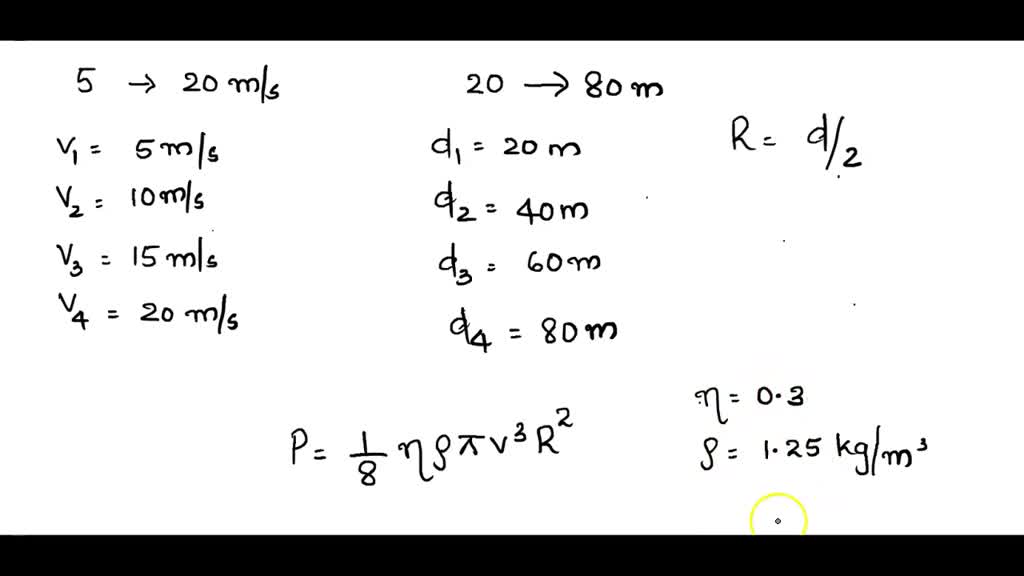 5 → 20 m/s
20 → 80 m
V₁ = 5 m/s
V₂ = 10 m/s
V₃ = 15 m/s
V₄ = 20 m/s
d₁ = 20 m
d₂ = 40 m
d₃ = 60 m
d₄ = 80 m
R = d/2
P = 1/8 η ρ π v³ R²
η = 0.3
ρ = 1.25 kg/m³